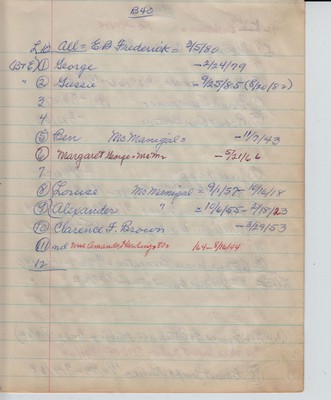 B40
L10 All = E.B. Frederick = 3/5/80
(B+E) ① George - 2/24/79
" ② Gussie - 9/25/85 (8/20/82)
3
4
⑤ Ben McManigal = - 11/7/43
⑥ Margaret George = McM - 5/21/66
7
⑧ Louise McManigal = 9/1/57 - 10/16/18
⑨ Alexander " = 10/6/55 - 2/18/23
⑩ Clarence F. Brown - 3/29/53
⑪ md Amanda 164 - 5/16/44
12